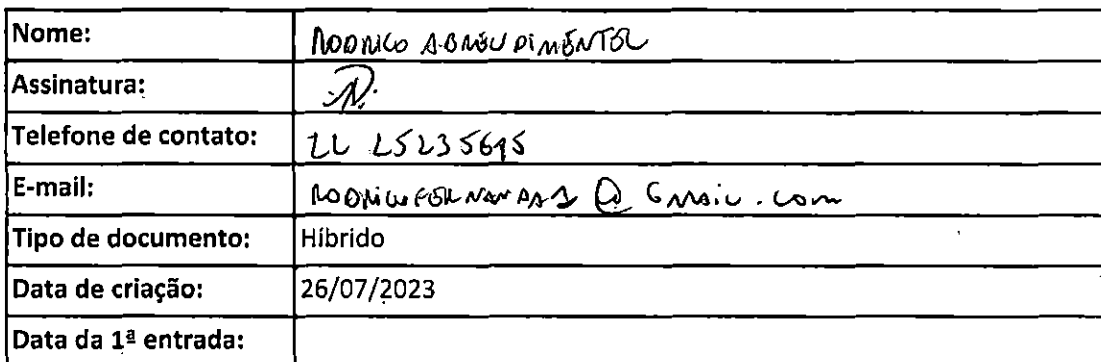 Nome: RODRIGO ABREU PIMENTEL
Assinatura:
Telefone de contato: 22 25235695
E-mail: @ Gmail.com
Tipo de documento: Híbrido
Data de criação: 26/07/2023
Data da 1ª entrada: